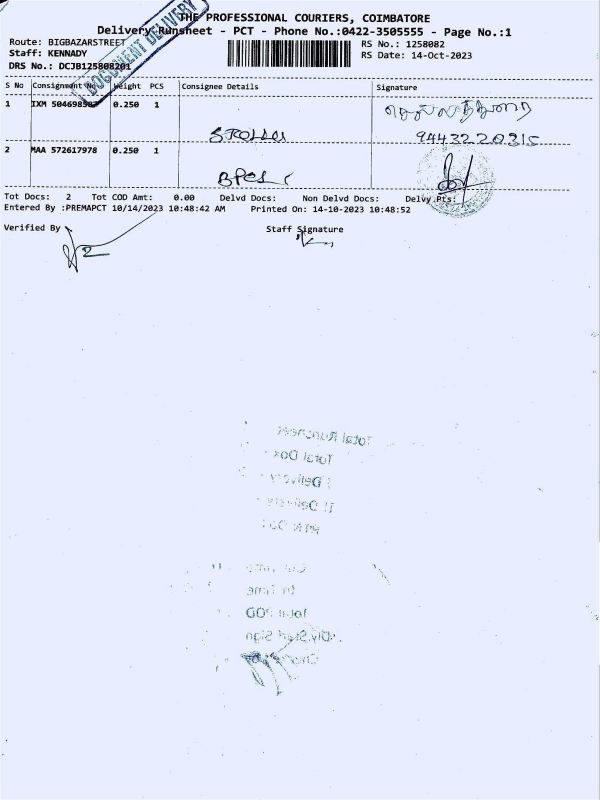 THE PROFESSIONAL COURIERS, COIMBATORE
Delivery Runsheet - PCT - Phone No.:0422-3505555 - Page No.:1
Route: BIGBAZARSTREET
RS No.: 1258082
Staff: KENNADY
RS Date: 14-Oct-2023
DRS No.: DCJB125808201
DOCUMENT DELIVERY
S No Consignment No Weight PCS Consignee Details Signature
1 IXM 504698507 0.250 1
9443220315
2 MAA 572617978 0.250 1
Tot Docs: 2 Tot COD Amt: 0.00 Delvd Docs: Non Delvd Docs: Delvy Pts:
Entered By :PREMAPCT 10/14/2023 10:48:42 AM Printed On: 14-10-2023 10:48:52
Verified By
Staff Signature
Total Runsheet
Total Dox
I Delivery
II Delivery
In Time
Total POD
Dly.Staff Sign